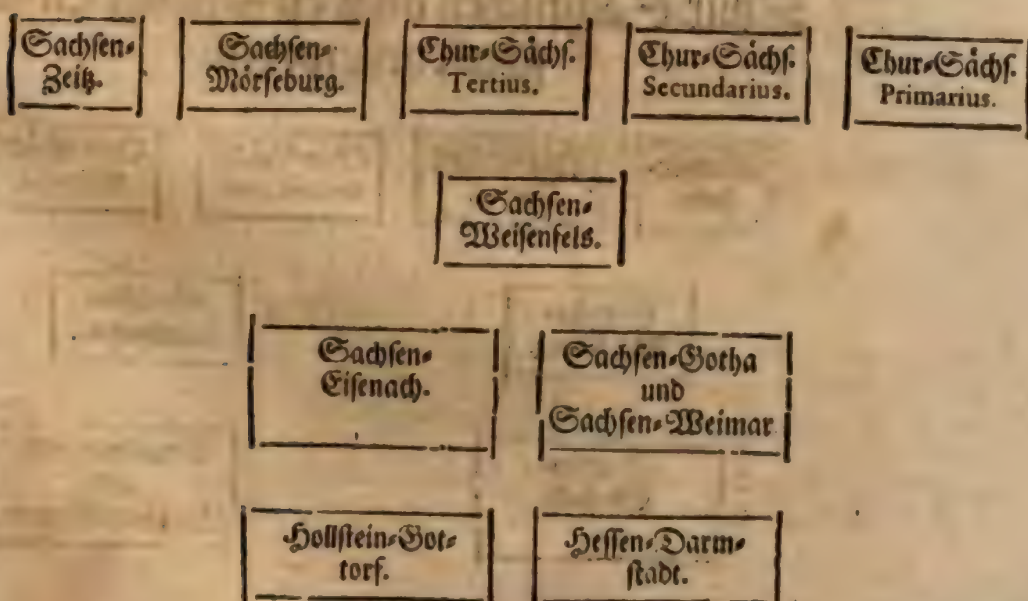 Sachsen-
Zeitz.
Sachsen-
Mörseburg.
Chur-Sächs.
Tertius.
Chur-Sächs.
Secundarius.
Chur-Sächs.
Primarius.
Sachsen-
Weisenfels.
Sachsen-
Eisenach.
Sachsen-Gotha
und
Sachsen-Weimar
Hollstein-Got-
torf.
Hessen-Darm-
stadt.